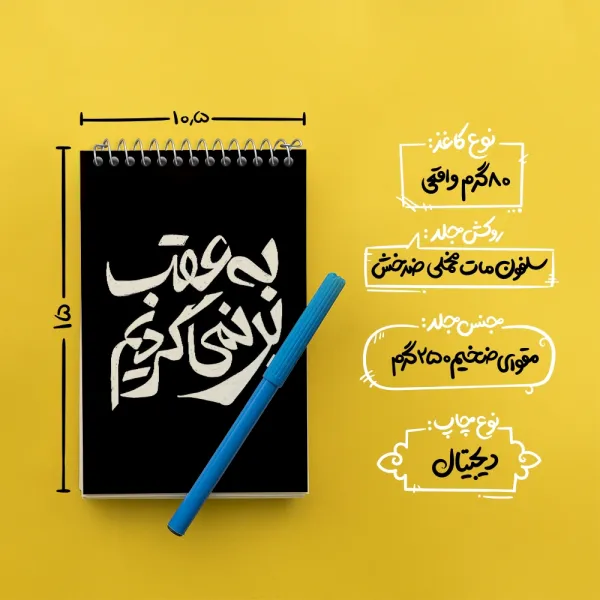 ۱۰٫۵
۱۵
به عقب
بر نمی گردیم
نوع کاغذ:
۸۰ گرم واقعی
روکش جلد:
سلفون مات مخملی ضدخش
جنس جلد:
مقوای ضخیم ۲۵۰ گرم
نوع چاپ:
دیجیتال